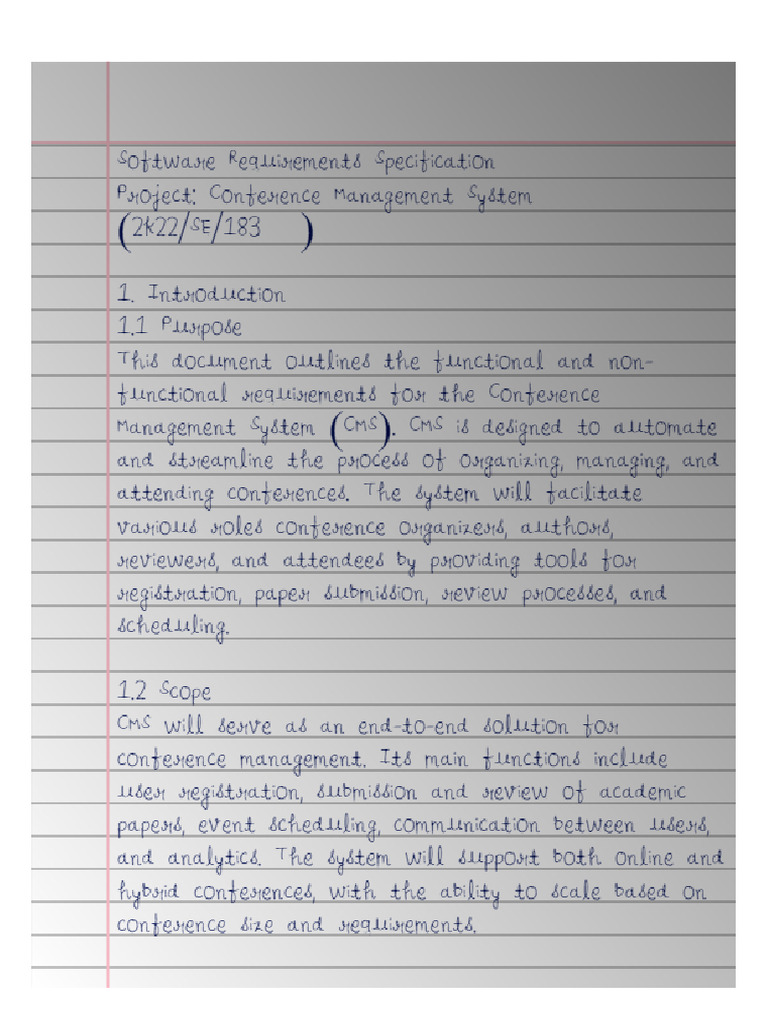 Software Requirements Specification
Project: Conference Management System
(2k22/SE/183 )
1. Introduction
1.1 Purpose
This document outlines the functional and non-
functional requirements for the Conference
Management System (CMS). CMS is designed to automate
and streamline the process of organizing, managing, and
attending conferences. The system will facilitate
various roles conference organizers, authors,
reviewers, and attendees by providing tools for
registration, paper submission, review processes, and
scheduling.
1.2 Scope
CMS will serve as an end-to-end solution for
conference management. Its main functions include
user registration, submission and review of academic
papers, event scheduling, communication between users,
and analytics. The system will support both online and
hybrid conferences, with the ability to scale based on
conference size and requirements.